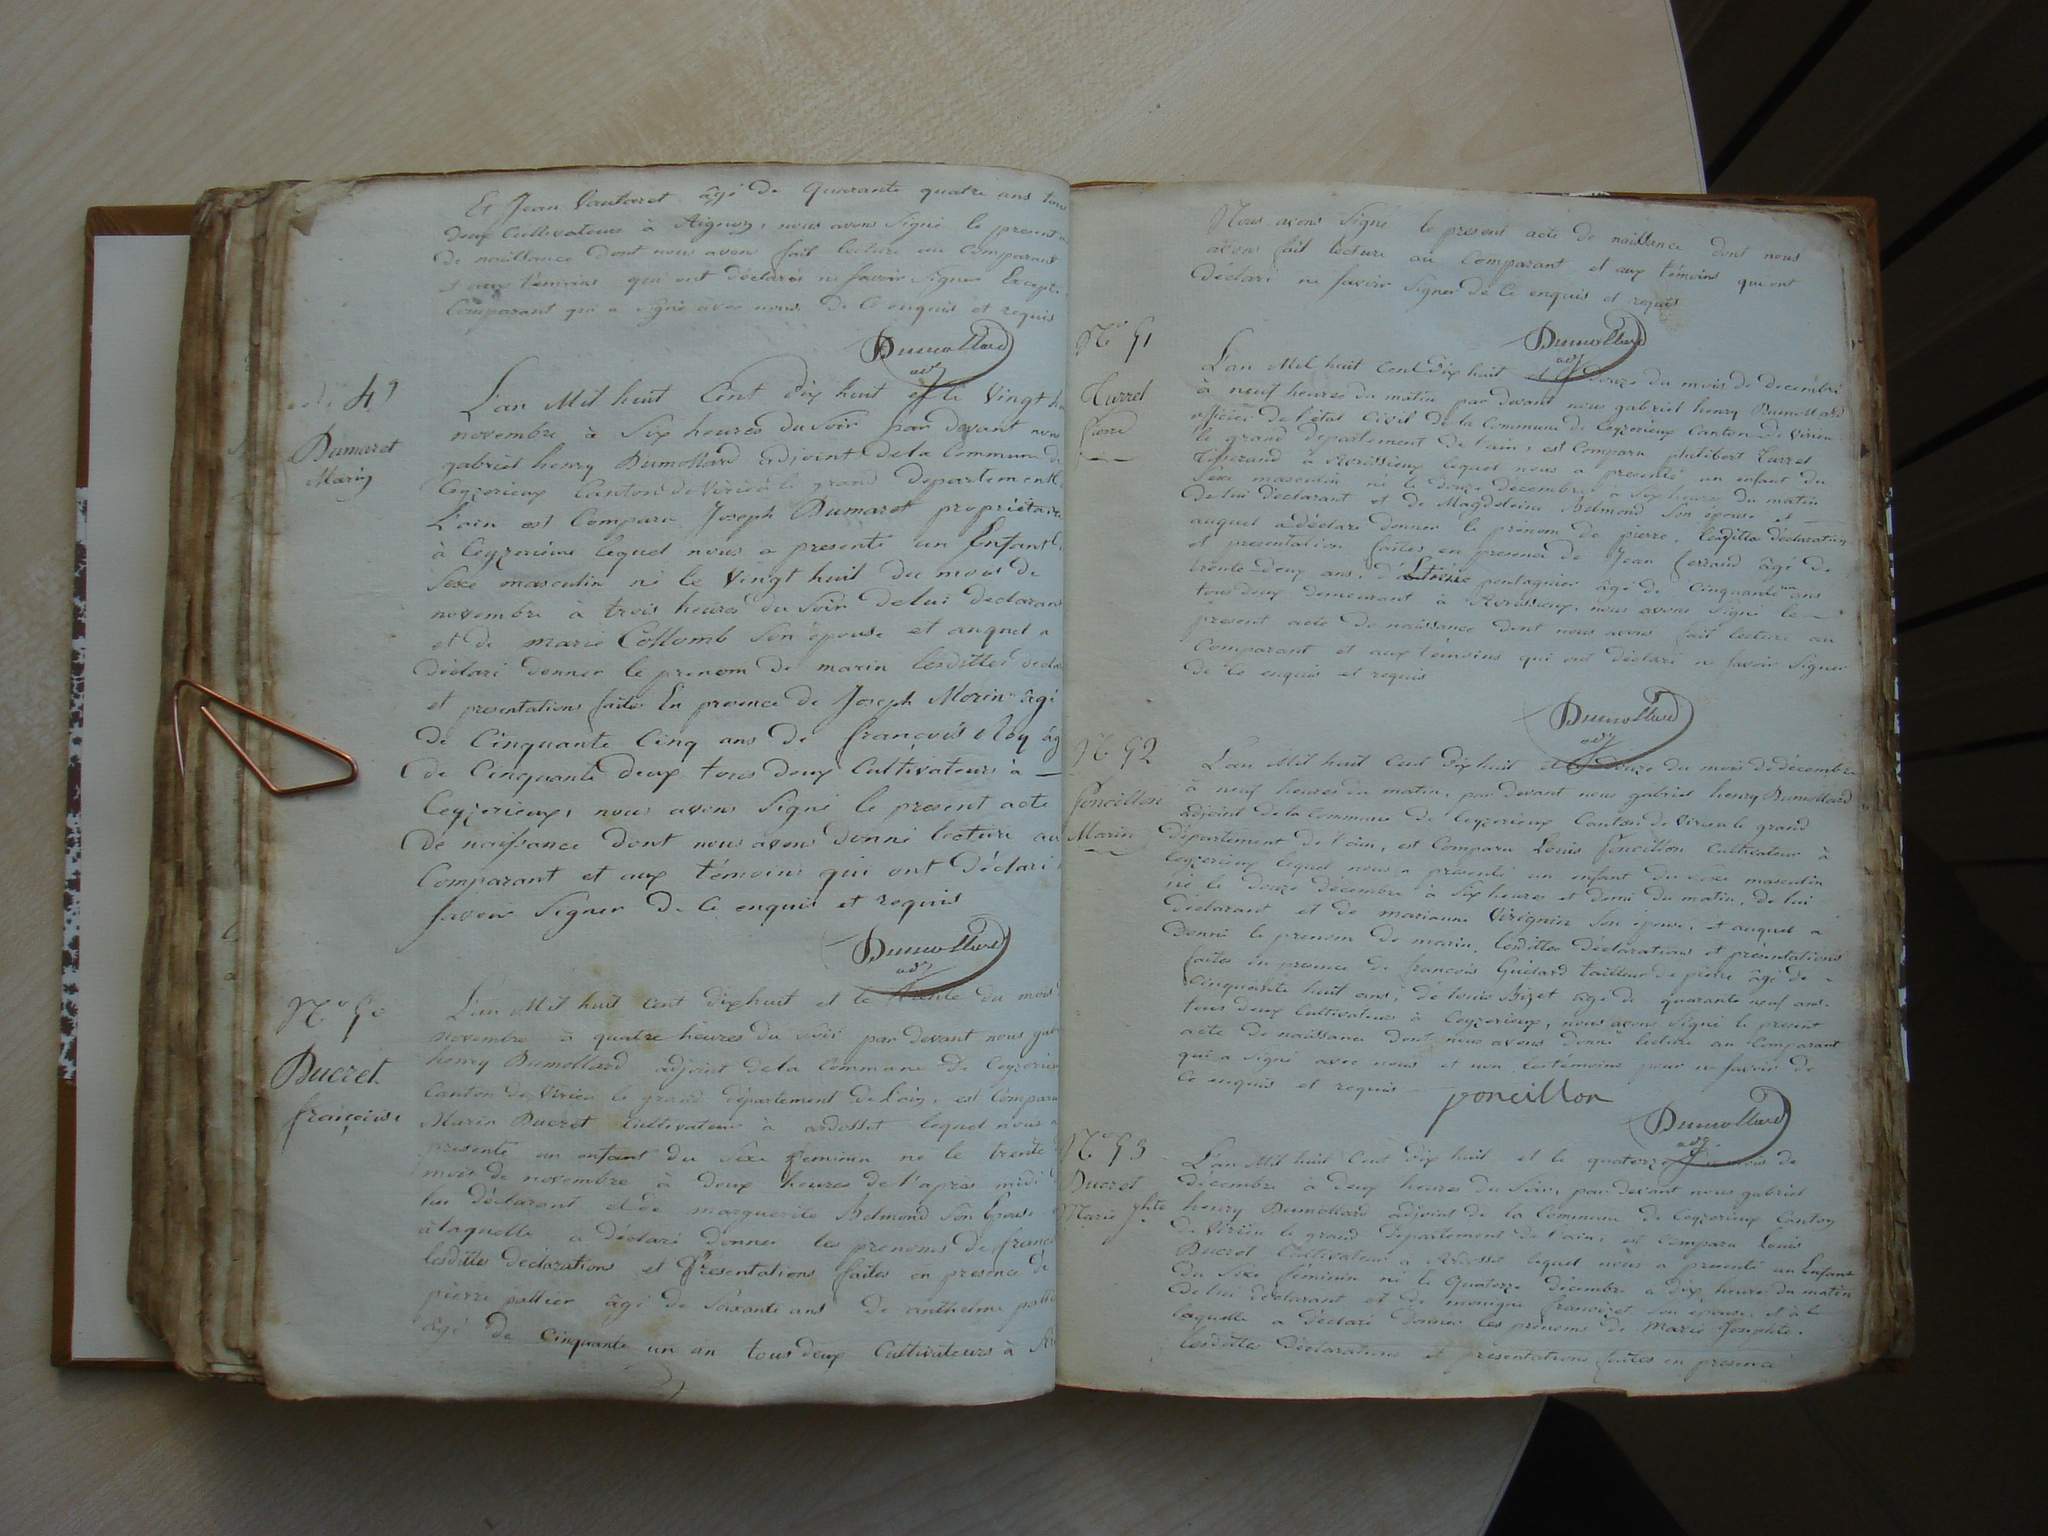 Et Jean Vautaret âgé de Quarante quatre ans tous
deux Cultivateurs à Aignoz, nous avons Signé le present
de naissance dont nous avons fait lecture au Comparant
et aux témoins qui ont déclarés ne savoir Signer Excepté
Comparant qui a signé avec nous de Ce enquis et requis
Dumollard
adj
49
Dumaret
Marin
L'an Mil huit Cent dix huit et le Vingt
novembre à Six heures du Soir par devant nous
gabriel henry Dumollard adjoint de la Commune de
Ceyzerieux Canton de Virieu le grand departement
L'ain est Comparu Joseph Dumaret propriétaire
à Ceyzerieux lequel nous a presenté un Enfant
Sexe masculin né le Vingt huit du mois de
novembre à trois heures du Soir de lui declarant
et de marie Collomb Son épouse et auquel a
déclaré donner le prenom de marin lesdittes
et presentations faites En presence de Joseph Morin âgé
de Cinquante Cinq ans de françois
de Cinquante deux tous deux Cultivateurs à
Ceyzerieux, nous avons Signé le present acte
de naissance dont nous avons donné lecture au
Comparant et aux témoins qui ont déclaré
savoir Signer de Ce enquis et requis
Dumollard
adj
N° 50
Ducret
françoise
L'an Mil huit cent dixhuit et le trente du mois
novembre à quatre heures du soir par devant nous
henry Dumollard adjoint de la Commune de Ceyzerieux
Canton de Virieu le grand département de L'ain, est Comparu
Marin Ducret Cultivateur à ardosset lequel nous a
presenté un enfant du Sexe feminin né le trente
mois de novembre à deux heures de l'après midi
lui déclarant et de marguerite Belmond Son Epouse
à laquelle a déclaré donner les prenoms de
lesdittes déclarations et Presentations faites en presence de
pierre pollier âgé de Soixante ans de anthelme
âgé de cinquante un an tous deux Cultivateurs à
Nous avons Signé le present acte de naissance dont nous
avons fait lecture au Comparant et aux témoins qui ont
déclaré ne savoir Signer de Ce enquis et requis
Dumollard
adj
N° 51
Turrel
pierre
L'an Mil huit Cent Dix huit et le douze du mois de decembre
à neuf heures du matin par devant nous gabriel henry Dumollard
officier de l'état Civil de la Commune de Ceyzerieux Canton de Virieu
le grand departement de l'ain, est Comparu philibert Turrel
Tisserand à Avrissieux lequel nous a presenté un enfant du
Sexe masculin né le douze decembre à Six heures du matin
de lui déclarant et de Magdeleine Belmond Son épouse et
auquel a déclaré donner le prenom de pierre, lesditte déclaration
et presentation faites en presence de Jean ferrand âgé de
trente deux ans, d'Etienne pontaquier âgé de Cinquante un ans
tous deux demeurant à Avrissieux, nous avons Signé le
present acte de naissance dont nous avons fait lecture au
Comparant et aux témoins qui ont déclaré ne savoir Signer
de Ce enquis et requis
Dumollard
adj
N° 52
poncillon
Marin
L'an Mil huit Cent Dix huit et le douze du mois de décembre
à neuf heures du matin, par devant nous gabriel henry Dumollard
adjoint de la Commune de Ceyzerieux Canton de Virieu le grand
département de l'ain, est Comparu Louis poncillon Cultivateur à
Ceyzerieux lequel nous a presenté un enfant du Sexe masculin
né le douze décembre à Six heures et demi du matin, de lui
déclarant et de marianne Virignier Son épouse, et auquel a
donné le prenom de marin, lesdittes déclarations et présentations
faites en presence de françois Guédard tailleur de pierre âgé de
Cinquante huit ans, de louis Bizet âgé de quarante neuf ans
tous deux Cultivateurs à Ceyzerieux, nous avons Signé le présent
acte de naissance dont nous avons donné lecture au Comparant
qui a Signé avec nous et non les témoins pour ne savoir de
Ce enquis et requis
poncillon
Dumollard
adj
N° 53
Ducret
Marie Jphte
L'an Mil huit Cent Dix huit et le quatorze du mois de
Decembre à deux heures du Soir, par devant nous gabriel
henry Dumollard adjoint de la Commune de Ceyzerieux Canton
de Virieu le grand Département de l'ain, est Comparu Louis
Ducret Cultivateur a lequel nous a presenté un Enfant
du Sexe féminin né le Quatorze décembre a dix heures du matin
de lui déclarant et de monique francizet Son épouse, et à
laquelle a déclaré donner les prénoms de Marie Josephte.
lesdittes Déclarations et présentations faites en presence